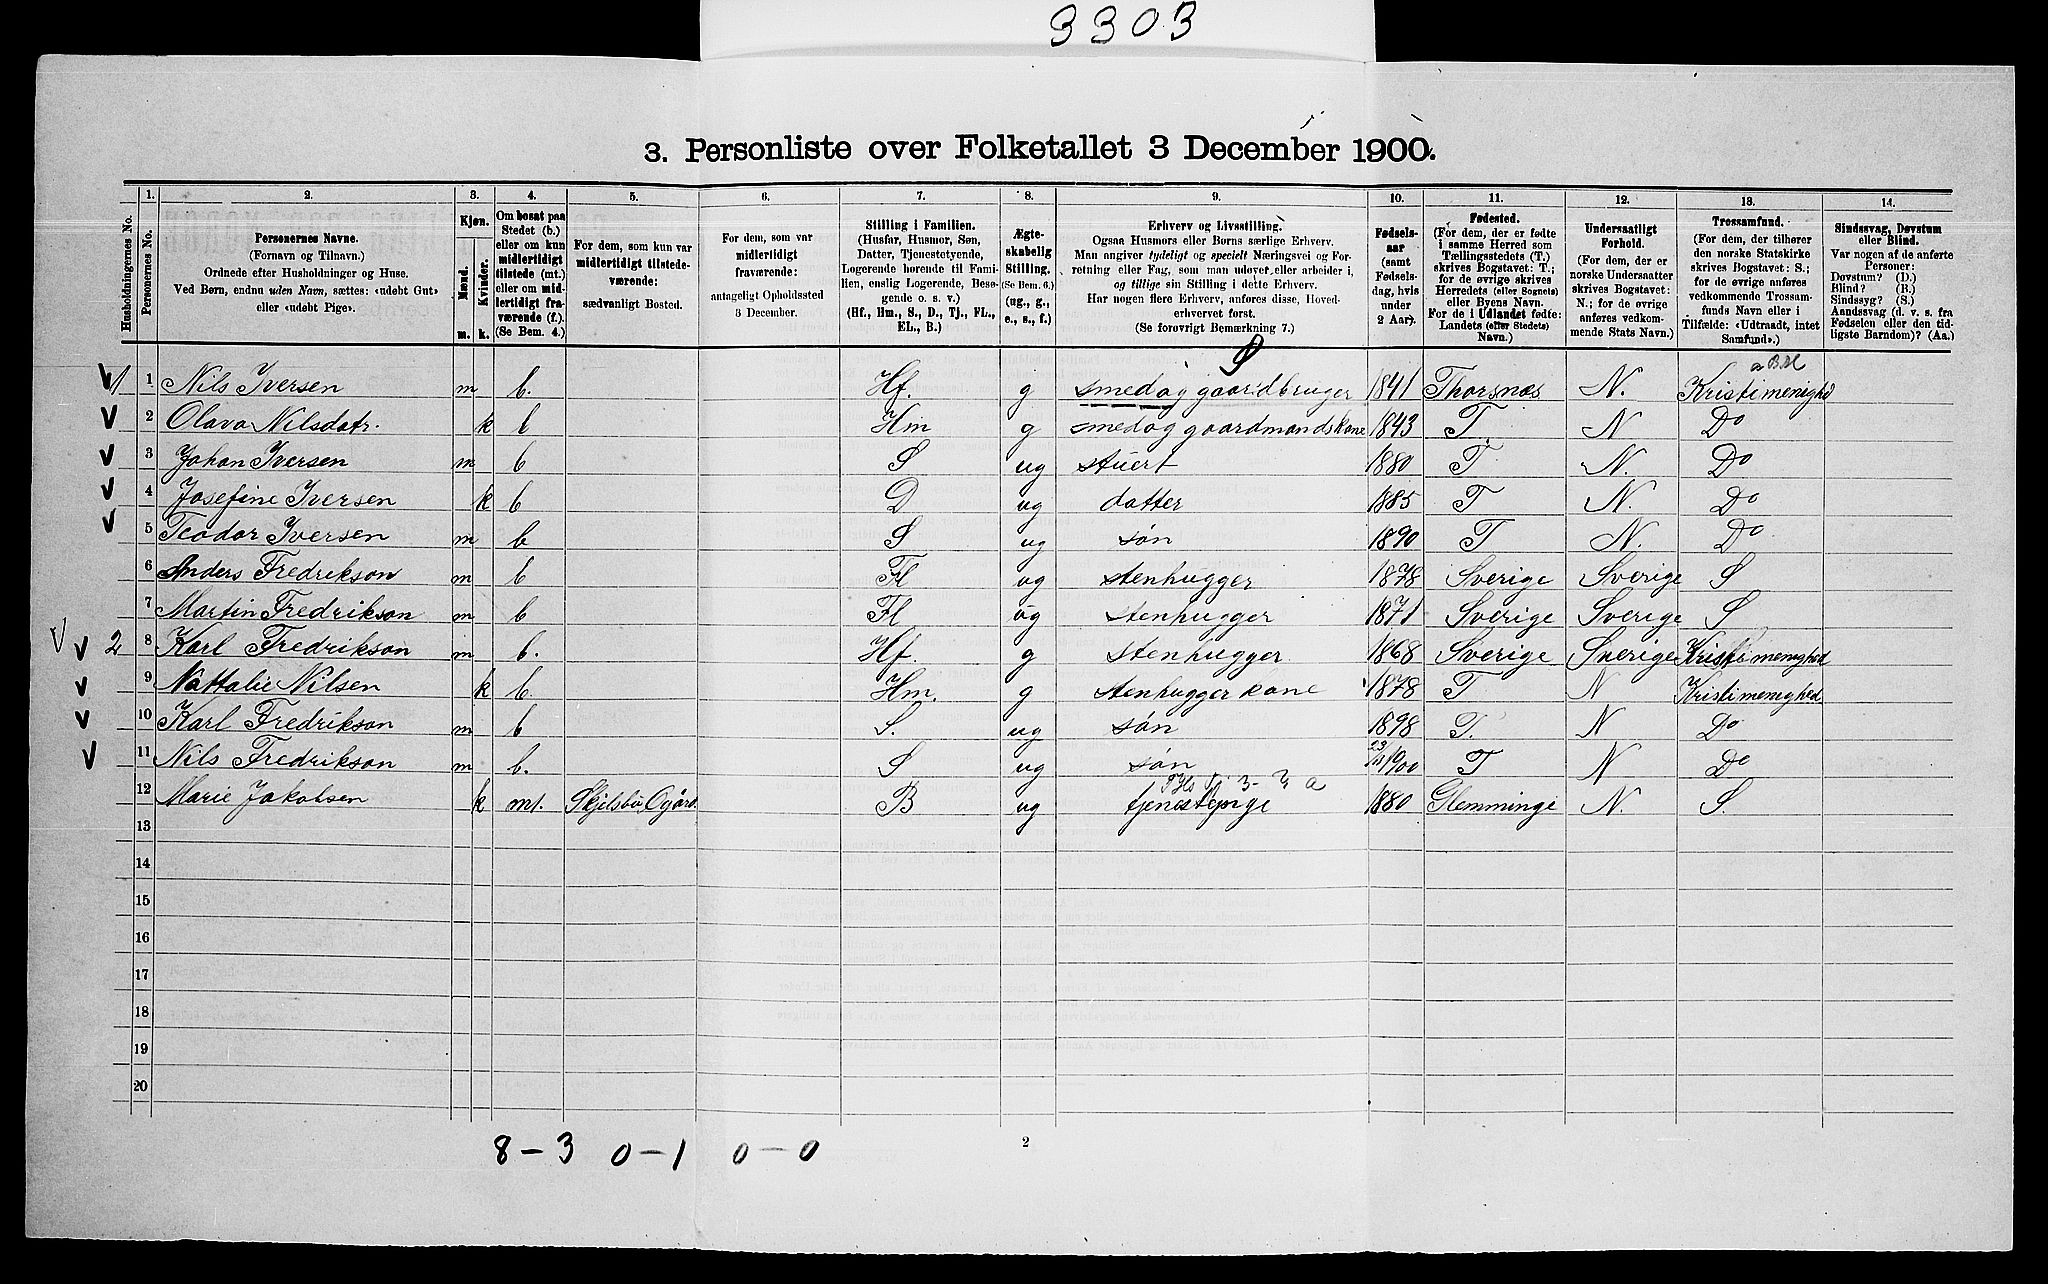 3303
3. Personliste over Folketallet 3 December 1900.
1. 2. 3. 4. 5. 6. 7. 8. 9. 10. 11. 12. 13. 14.
Husholdningernes No.
Personernes No.
Personernes Navne.
(Fornavn og Tilnavn.)
Ordnede efter Husholdninger og Huse.
Ved Børn, endnu uden Navn, sættes: «udøbt Gut»
eller «udøbt Pige».
Kjøn.
Mænd.
Kvinder.
m. k.
Om bosat paa
Stedet (b.)
eller om kun
midlertidigt
tilstede (mt.)
eller om mid-
lertidigt fra-
værende (f.).
(Se Bem. 4.)
For dem, som kun var
midlertidigt tilstede-
værende:
sædvanligt Bosted.
For dem, som var
midlertidigt
fraværende:
antageligt Opholdssted
3 December.
Stilling i Familien.
(Husfar, Husmor, Søn,
Datter, Tjenestetyende,
Logerende hørende til Fami-
lien, enslig Logerende, Besø-
gende o. s. v.)
(Hf., Hm., S., D., Tj., FL.,
EL., B.)
Ægte-
skabelig
Stilling.
(Se Bem. 6.)
(ug., g.,
e., s., f.)
Erhverv og Livsstilling.
Ogsaa Husmors eller Børns særlige Erhverv.
Man angiver tydeligt og specielt Næringsvei og For-
retning eller Fag, som man udøver eller arbeider i,
og tillige sin Stilling i dette Erhverv.
Har nogen flere Erhverv, anføres disse, Hoved-
erhvervet først.
(Se forøvrigt Bemærkning 7.)
Fødsels-
aar
(samt
Fødsels-
dag, hvis
under
2 Aar).
Fødested.
(For dem, der er fødte
i samme Herred som
Tællingsstedets (T.)
skrives Bogstavet: T.;
for de øvrige skrives
Herredets (eller Sognets)
eller Byens Navn.
For de i Udlandet fødte:
Landets (eller Stedets)
Navn.)
Undersaatligt
Forhold.
(For dem, der er
norske Undersaatter
skrives Bogstavet:
N.; for de øvrige
anføres vedkom-
mende Stats Navn.)
Trossamfund.
(For dem, der tilhører
den norske Statskirke
skrives Bogstavet: S.;
for de øvrige anføres
vedkommende Trossam-
funds Navn eller i
Tilfælde: «Udtraadt, intet
Samfund».)
Sindssvag, Døvstum
eller Blind.
Var nogen af de anførte
Personer:
Døvstum? (D.)
Blind? (B.)
Sindssyg? (S.)
Aandssvag (d. v. s. fra
Fødselen eller den tid-
ligste Barndom)? (Aa.)
1 1 Nils Iversen m b. Hf. g smed og gaardbruger 1841 Thorsnæs N. Kristi menighd
2 Olava Nilsdatr. k b Hm g smed og gaardmandskone 1843 T. N Do
3 Johan Iversen m b S ug stuert 1880 T N. Do
4 Josefine Iversen k b D ug datter 1885 T N. Do
5 Teodor Iversen m b S ug søn 1890 T N. Do
6 Anders Fredrikson m b Fl ug stenhugger 1878 Sverige Sverige S
7 Martin Fredrikson m b Fl ug stenhugger 1871 Sverige Sverige S
2 8 Karl Fredrikson m b. Hf. g stenhugger 1868 Sverige Sverige Kristi menighed
9 Nattalie Nilsen k b Hm. g stenhugger kone 1878 T N Kristi menighed
10 Karl Fredrikson m b S. ug søn 1898 T. N Do
11 Nils Fredrikson m b. S ug søn 1900 T N Do
12 Marie Jakobsen k mt. Skjelsbu Ogård B ug tjenestepige 1880 Glemminge N. S.
13
14
15
16
17
18
19
20
8-3 0-1 0-0
2